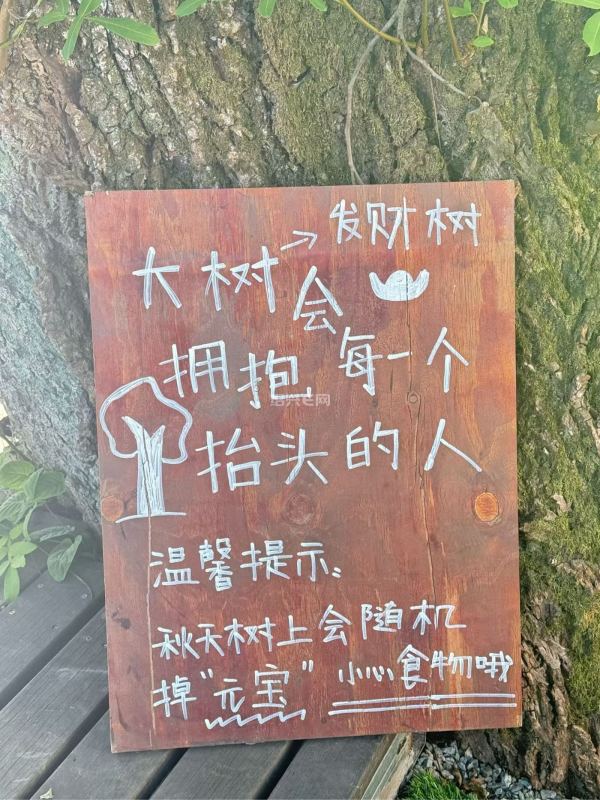 大树→发财树
会
拥抱每一个
抬头的人
温馨提示:
秋天树上会随机
掉“元宝”小心食物哦
绍兴E网